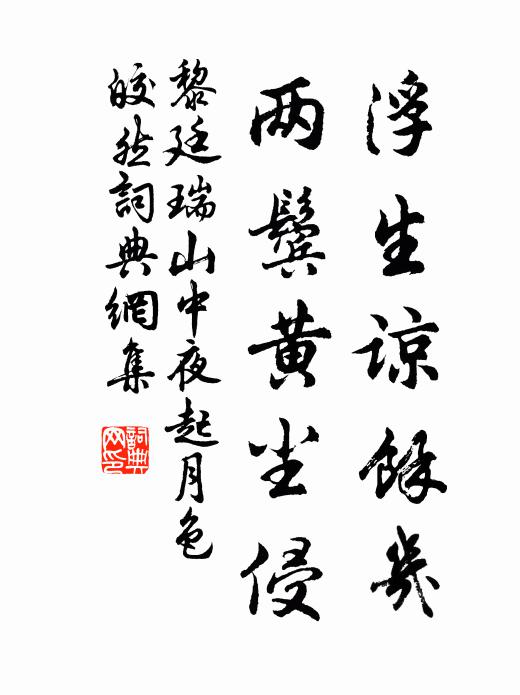 浮生谅餘幾
两鬓黄尘侵
黎廷瑞山中夜起月色
皎然詞典網集
詞典
网印